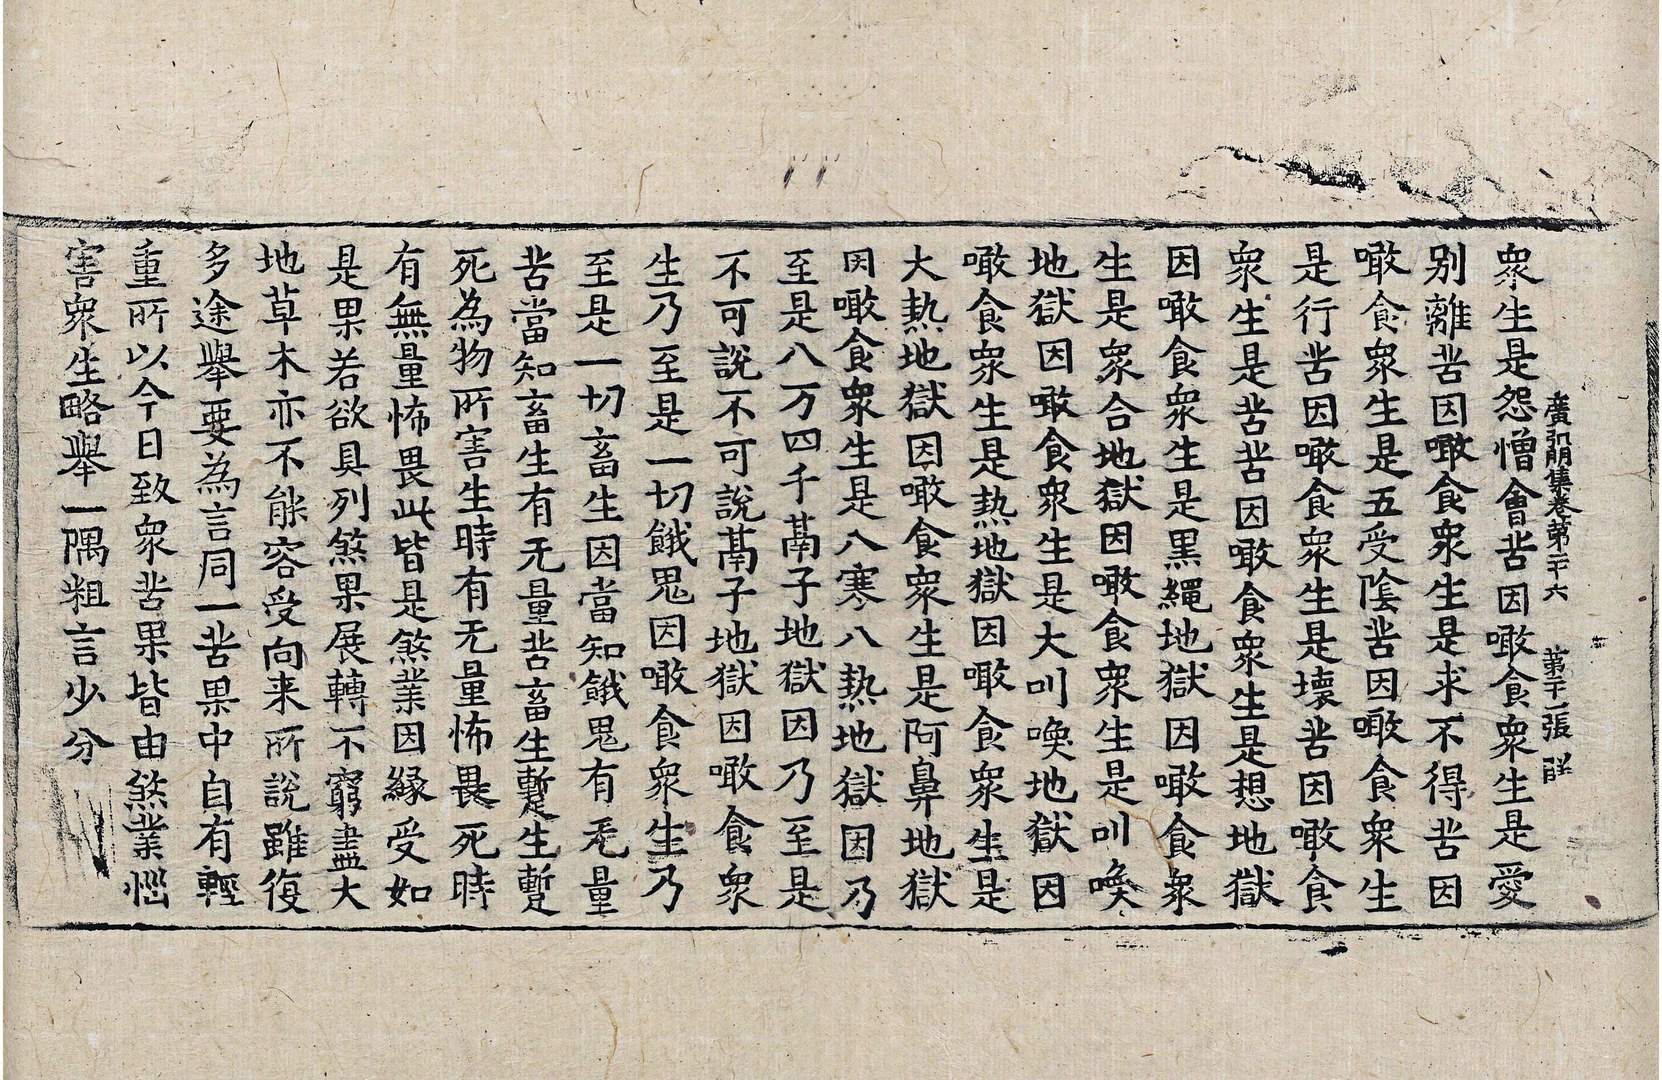 廣弘明集卷第二十六　第二十一張　𠃔
衆生是怨憎會苦因噉食衆生是愛
别離苦因噉食衆生是求不得苦因
噉食衆生是五受陰苦因噉食衆生
是行苦因噉食衆生是壞苦因噉食
衆生是苦苦因噉食衆生是想地獄
因噉食衆生是黑繩地獄因噉食衆
生是衆合地獄因噉食衆生是叫喚
地獄因噉食衆生是大叫喚地獄因
噉食衆生是熱地獄因噉食衆生是
大熱地獄因噉食衆生是阿鼻地獄
因噉食衆生是八寒八熱地獄因乃
至是八万四千鬲子地獄因乃至是
不可說不可說鬲子地獄因噉食衆
生乃至是一切餓鬼因噉食衆生乃
至是一切畜生因當知餓鬼有无量
苦當知畜生有无量苦畜生蹔生蹔
死為物所害生時有无量怖畏死時
有無量怖畏此皆是煞業因緣受如
是果若欲具列煞果展轉不窮盡大
地草木亦不能容受向来所說雖復
多途舉要為言同一苦果中自有輕
重所以今日致衆苦果皆由煞業惱
害衆生略舉一隅粗言少分